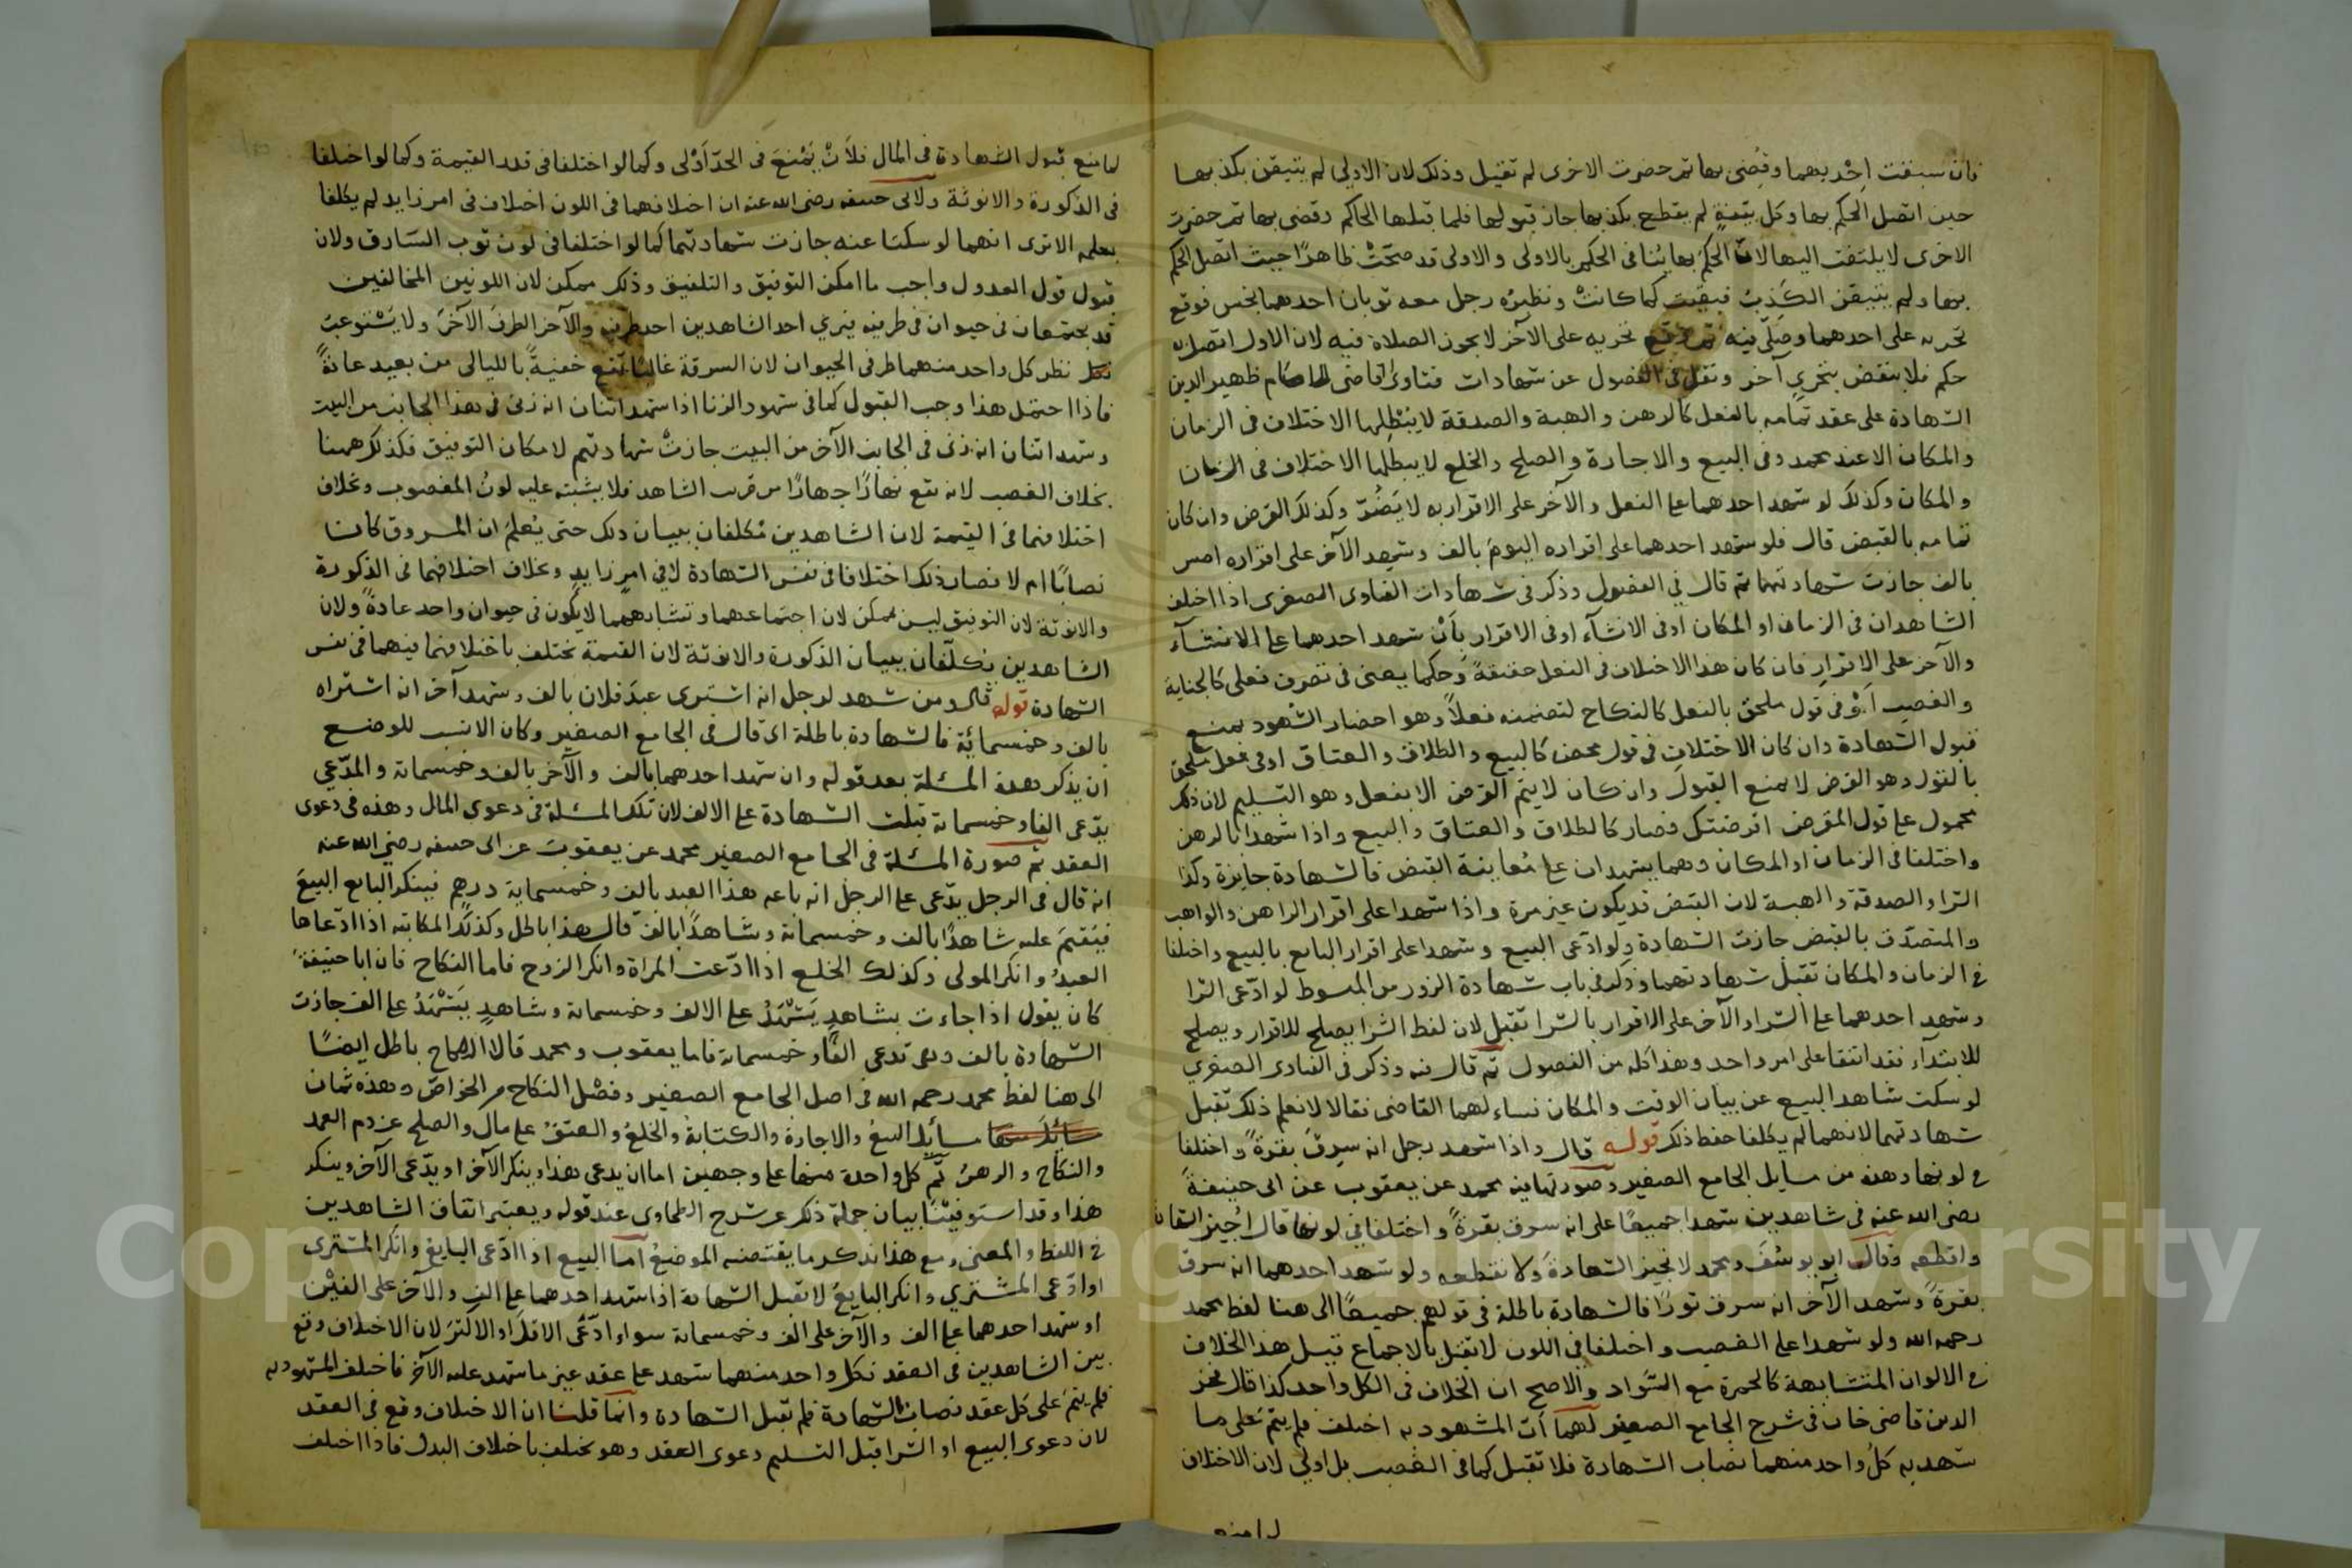 فان سبقت احديهما وقضى بها ثم حضرت الاخرى لم تقبل وذلك لان الاولى لم يتيقن بكذبها
حين اتصل الحكم بها وكل بينة لم يقطع بكذبها جاز قبولها فلما قبلها الحاكم وقضى بها ثم حضرت
الاخرى لا يلتفت اليها لان الحكم بها ينافى الحكم بالاولى والاولى قد صحت ظاهرا حيث اتصل الحكم
بها ولم يتيقن الكذب فبقيت كما كانت ونظيره رجل معه ثوبان احدهما نجس فوقع
تحريه على احدهما وصلى فيه ثم وقع تحريه على الآخر لا يجوز الصلاة فيه لان الاول اتصل به
حكم فلا ينقض بتحري آخر ونقل فى الفصول عن شهادات فتاوى القاضى الامام ظهير الدين
الشهادة على عقد تمامه بالفعل كالرهن والهبة والصدقة لا يبطلها الاختلاف فى الزمان
والمكان الا عند محمد وفى البيع والاجارة والصلح والخلع لا يبطلها الاختلاف فى الزمان
والمكان وكذلك لو شهد احدهما على الفعل والآخر على الاقرار به لا يضر وكذلك القرض وان كان
تمامه بالقبض قال فلو شهد احدهما على اقراره اليوم بالف وشهد الآخر على اقراره امس
بالف جازت شهادتهما ثم قال فى الفصول وذكر فى شهادات الفتاوى الصغرى اذا اختلف
الشاهدان فى الزمان او المكان او فى الانشآء او فى الاقرار بأن شهد احدهما على الانشآء
والآخر على الاقرار فان كان هذا الاختلاف فى الفعل حقيقة وحكما يعنى فى تصرف فعلى كالجناية
والغصب أو فى قول ملحق بالفعل كالنكاح لتضمنه فعلا وهو احضار الشهود يمنع
قبول الشهادة وان كان الاختلاف فى قول محض كالبيع والطلاق والعتاق او فى فعل ملحق
بالقول وهو القرض لا يمنع القبول وان كان لا يتم القرض الا بفعل وهو التسليم لان ذلك
محمول على قول المقرض اقرضتك فصار كالطلاق والعتاق والبيع واذا شهدا بالرهن
واختلفا فى الزمان او المكان وهما يشهدان على معاينة القبض فالشهادة جايزة وكذا
الشرا والصدقة والهبة لان القبض قد يكون غير مرة واذا شهدا على اقرار الراهن والواهب
والمتصدق بالقبض جازت الشهادة ولو ادعى البيع وشهدا على اقرار البايع بالبيع واختلفا
فى الزمان والمكان تقبل شهادتهما وذكر فى باب شهادة الزور من المبسوط لو ادعى الشرا
وشهد احدهما على الشرا والآخر على الاقرار بالشرا تقبل لان لفظ الشرا يصلح للاقرار ويصلح
للابتدآء فقد اتفقا على امر واحد وهذا كله من الفصول ثم قال فيه وذكر فى الفتاوى الصغرى
لو سكت شاهدا البيع عن بيان الوقت والمكان فساءلهما القاضى فقالا لا نعلم ذلك تقبل
شهادتهما لانهما لم يكلفا حفظ ذلك قوله قال واذا شهد رجل انه سرق بقرة واختلفا
فى لونها وهذه من مسايل الجامع الصغير وصورتها فيه محمد عن يعقوب عن ابى حنيفة
رضى الله عنه فى شاهدين شهدا جميعا على انه سرق بقرة واختلفا فى لونها قال اجيز الشهادة
واقطعه وقال ابو يوسف ومحمد لا نجيز الشهادة ولا نقطعه ولو شهد احدهما انه سرق
بقرة وشهد الآخر انه سرق ثورا فالشهادة باطلة فى قولهم جميعا الى هنا لفظ محمد
رحمه الله ولو شهدا على الغصب واختلفا فى اللون لا يقبل بالاجماع قيل هذا الخلاف
فى الالوان المتشابهة كالحمرة مع السواد والاصح ان الخلاف فى الكل واحد كذا قال فخر
الدين قاضى خان فى شرح الجامع الصغير لهما ان المشهود به اختلف فلم يتم على ما
شهد به كل واحد منهما نصاب الشهادة فلا تقبل كما فى الغصب بل اولى لان الاختلاف
لما منع
لما منع قبول الشهادة فى المال فلأن يمنع فى الحد أولى وكما لو اختلفا فى قدر القيمة وكما لو اختلفا
فى الذكورة والانوثة ولابى حنيفه رضى الله عنه ان اختلافهما فى اللون اختلاف فى امر زايد لم يكلفا
بعلمه الا ترى انهما لو سكتا عنه جازت شهادتهما كما لو اختلفا فى لون ثوب السارق ولان
قبول قول العدول واجب ما امكن التوفيق والتلفيق وذلك ممكن لان اللونين المخالفين
قد يجتمعان فى حيوان فى طرفيه فيرى احد الشاهدين احد طرفيه والآخر الطرف الآخر ولا يستوعب
نظر كل واحد منهما طرفى الحيوان لان السرقة غالبا تقع خفية بالليالى من بعيد عادة
فاذا احتمل هذا وجب القبول كما فى شهود الزنا اذا شهد اثنان انه زنى فى هذا الجانب من البيت
وشهد اثنان انه زنى فى الجانب الآخر من البيت جازت شهادتهم لامكان التوفيق فكذلك ههنا
بخلاف الغصب لانه يقع نهارا جهارا من قرب الشاهد فلا يشتبه عليه لون المغصوب وبخلاف
اختلافهما فى القيمة لان الشاهدين مكلفان ببيان ذلك حتى يعلم ان المسروق كان
نصابا ام لا فصار ذلك اختلافا فى نفس الشهادة لا فى امر زايد وبخلاف اختلافهما فى الذكورة
والانوثة لان التوفيق ليس بممكن لان اجتماعهما وتشابههما لا يكون فى حيوان واحد عادة ولان
الشاهدين يكلفان ببيان الذكورة والانوثة لان القيمة تختلف باختلافهما فيهما فى نفس
الشهادة قوله قال ومن شهد لرجل انه اشترى عبد فلان بالف وشهد آخر انه اشتراه
بالف وخمسمائة فالشهادة باطلة اى قال فى الجامع الصغير وكان الانسب للوضع
ان يذكر هذه المسئلة بعد قوله وان شهد احدهما بالف والآخر بالف وخمسماية والمدعي
يدعى الفا وخمسماية قبلت الشهادة على الالف لان تلك المسئلة فى دعوى المال وهذه فى دعوى
العقد ثم صورة المسئلة فى الجامع الصغير محمد عن يعقوب عن ابى حنيفه رضى الله عنه
انه قال فى الرجل يدعى على الرجل انه باعه هذا العبد بالف وخمسماية درهم فينكر البايع البيع
فيقيم عليه شاهدا بالف وخمسماية وشاهدا بالف قال هذا باطل وكذلك المكاتبة اذا ادعاها
العبد وانكر المولى وكذلك الخلع اذا ادعت المراة وانكر الزوج فاما النكاح فان ابا حنيفة
كان يقول اذا جاءت بشاهد يشهد على الالف وخمسماية وشاهد يشهد على الف جازت
الشهادة بالف وهى تدعى الفا وخمسماية فاما يعقوب ومحمد قالا النكاح باطل ايضا
الى هنا لفظ محمد رحمه الله فى اصل الجامع الصغير وفصل النكاح من الخواص وهذه ثمان
مسايل البيع والاجارة والكتابة والخلع والعتق على مال والصلح عن دم العمد
والنكاح والرهن ثم كل واحدة منها على وجهين اما ان يدعى هذا وينكر الآخر او يدعى الآخر وينكر
هذا وقد استوفينا بيان جملة ذكر عن شرح الطحاوى عند قوله ويعتبر اتفاق الشاهدين
فى اللفظ والمعنى ومع هذا نذكر ما يقتضيه الموضع اما البيع اذا ادعى البايع وانكر المشترى
او ادعى المشتري وانكر البايع لا تقبل الشهادة اذا شهد احدهما على الف والآخر على الفين
او شهد احدهما على الف والآخر على الف وخمسماية سواء ادعى الاقل او الاكثر لان الاختلاف وقع
بين الشاهدين فى العقد فكل واحد منهما شهد على عقد غير ما شهد عليه الآخر فاختلف المشهود به
فلم يتم على كل عقد نصاب الشهادة فلم تقبل الشهادة وانما قلنا ان الاختلاف وقع فى العقد
لان دعوى البيع او الشرا قبل التسليم دعوى العقد وهو يختلف باختلاف البدل فاذا اختلف
Copyright © King Saud University